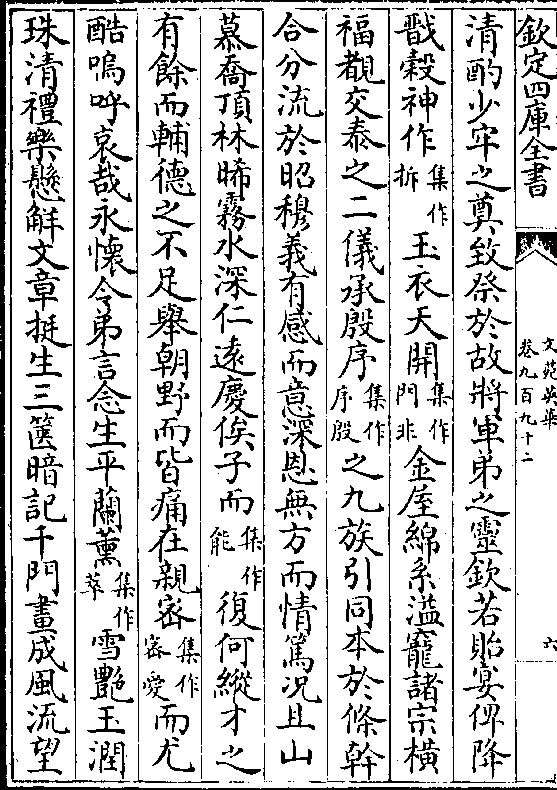 欽定四庫全書
文苑英華
卷九百九十二
六
清酌少牢之奠致祭於故將軍弟之靈欽若貽宴俾降
戩穀神作集作拆玉衣天開集作門非金屋綿系溢寵諸宗橫
福覩交泰之二儀承殷序集作序殷之九族引同本於條幹
合分流於昭穆義有感而意深恩無方而情篤况且山
慕喬頂林晞霧水深仁遠慶俟子而集作能復何縱才之
有餘而輔德之不足舉朝野而皆痛在親密集作密愛而尤
酷嗚呼哀哉永懷令弟言念生平蘭薰集作萃雪艷玉潤
珠清禮樂懸解文章挺生三篋暗記千門畫成風流望